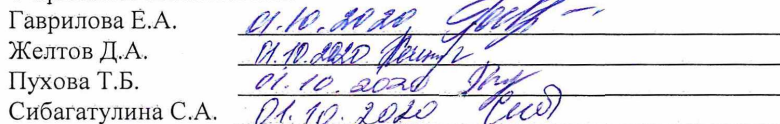 Гаврилова Е.А. 01.10.2020
Желтов Д.А. 01.10.2020
Пухова Т.Б. 01.10.2020
Сибагатулина С.А. 01.10.2020